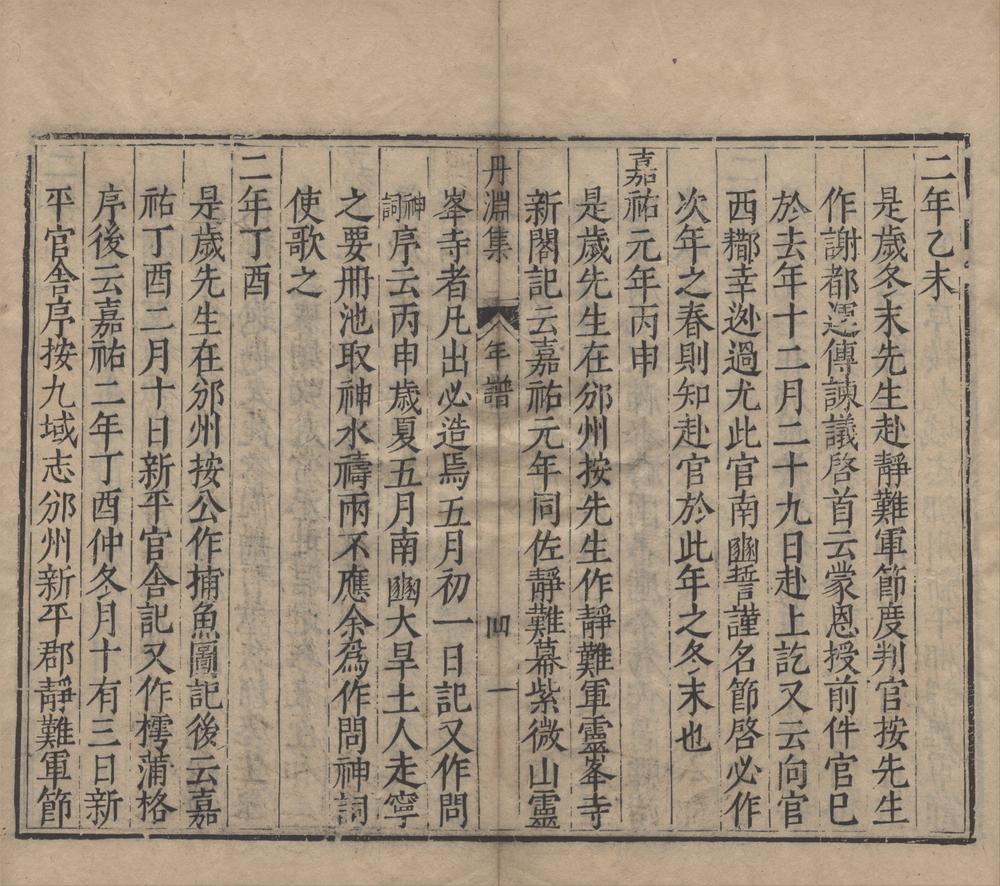 二年乙未
是歲冬末先生赴靜難軍節度判官按先生
作謝都運傅諫議啓首云蒙恩授前件官巳
於去年十二月二十九日赴上訖又云向官
西鄰幸遜過尤此官南豳誓謹名節啓必作
次年之春則知赴官於此年之冬末也
嘉祐元年丙申
是歲先生在邠州按先生作靜難軍靈峯寺
新閣記云嘉祐元年同佐靜難幕紫微山靈
丹淵集 年譜 四 一
峯寺者凡出必造焉五月初一日記又作問
神詞序云丙申歲夏五月南豳大旱土人走寧
之要冊池取神水禱雨不應余爲作問神詞
使歌之
二年丁酉
是歲先生在邠州按公作捕魚圖記後云嘉
祐丁酉二月十日新平官舍記又作樗蒲格
序後云嘉祐二年丁酉仲冬月十有三日新
平官舍序按九域志邠州新平郡靜難軍節